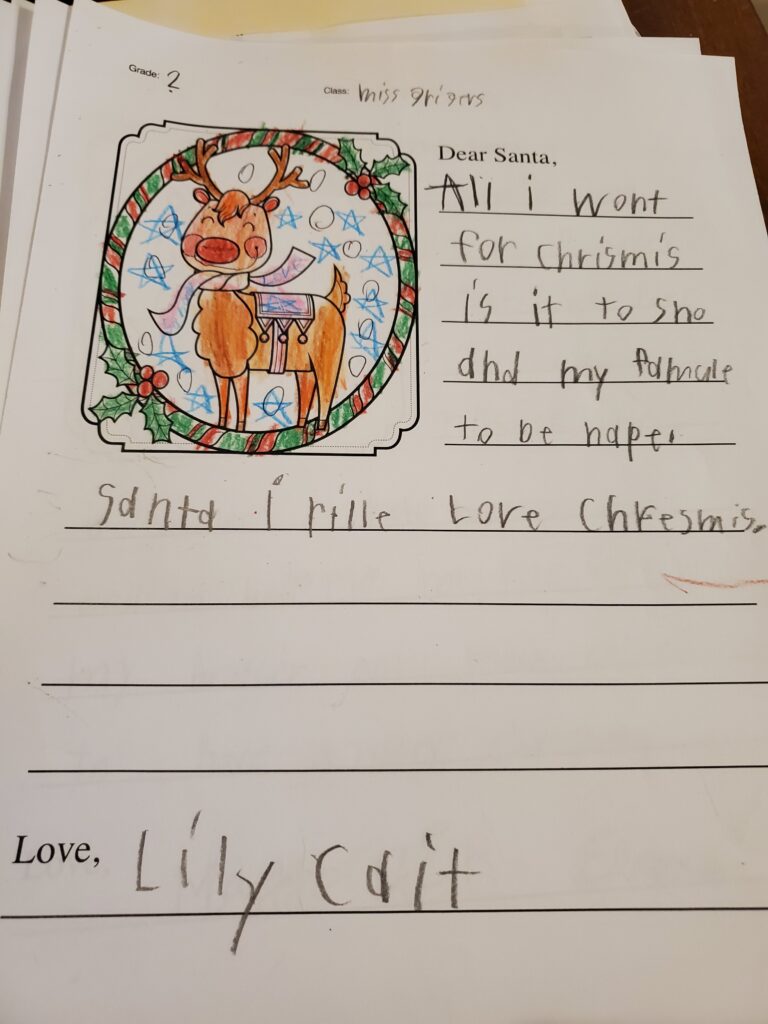 Grade: 2
Class: miss grigers
Dear Santa,
All i wont
for chrismis
is it to sno
and my famule
to be haper
Santa i rille Love Chresmis.
Love, Lily Cait